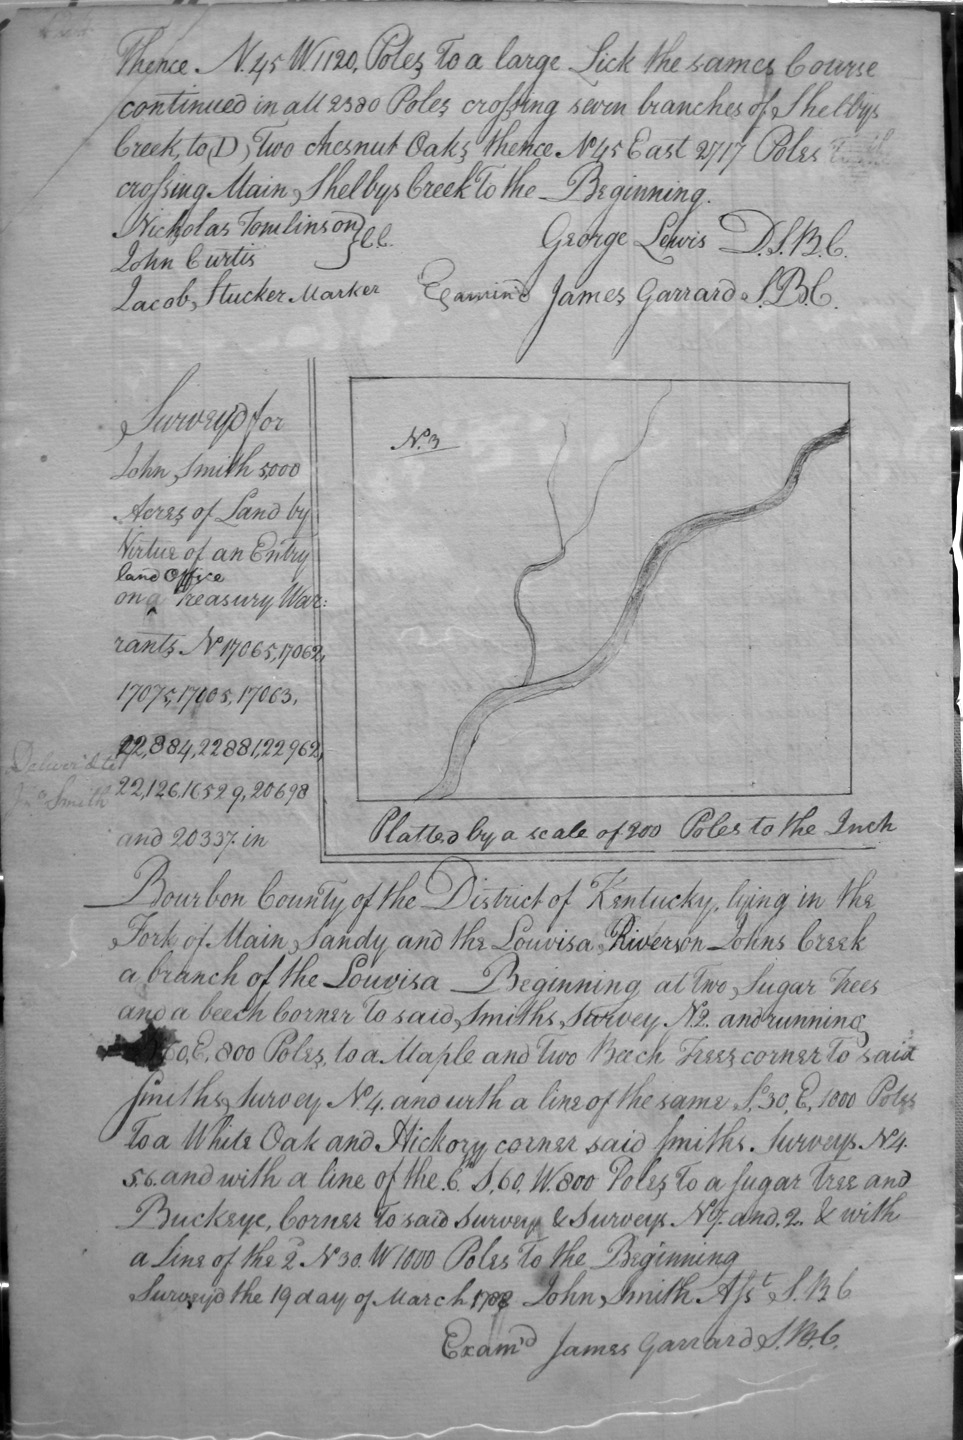 Thence N.45 W.1120, Poles to a large Lick the same Course
continued in all 2580 Poles crossing seven branches of Shelbys
Creek, to (D) Two chesnut Oaks thence No 45 East 2717 Poles
crossing Main Shelbys Creek To the Beginning.
Nicholas Tomlinson } CC.
John Curtis
George Lewis D.S.B.C.
Jacob Stucker Marker
Examin'd James Garrard S.B.C.
Survey'd for
John Smith 5000
Acres of Land by
Virtue of an Entry
land Office
on a Treasury War:
rants No 17065, 17062,
17075, 17005, 17063,
22,884, 22881, 22962,
22,126, 16529, 20698
and 20337. in
Deliver'd to
Jno Smith
No 3
Platted by a scale of 200 Poles to the Inch
Bourbon County of the District of Kentucky, lying in the
Fork of Main Sandy and the Louvisa Rivers on Johns Creek
a branch of the Louvisa Beginning at two Sugar Trees
and a beech Corner to said Smiths Survey No 2. and running
60, E, 800 Poles, to a Maple and two Beech Trees corner to said
Smiths Survey No 4. and with a line of the same So 30, E, 1000 Poles
To a White Oak and Hickory corner said Smiths Surveys No 4
5.6. and with a line of the 6. S, 60, W. 800 Poles to a Sugar Tree and
Buckeye, Corner to said Survey & Surveys No 7. and. 2. & with
a line of the 2 N 30. W 1000 Poles to the Beginning
Survey'd the 19 day of March 1788 John Smith Asst S.B C
Exam'd James Garrard S.B.C.